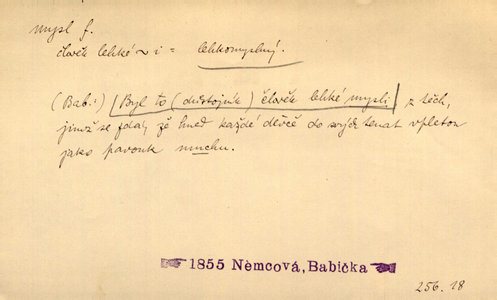 mysl f.
člověk lehké ~ i = lehkomyslný.
(Bab.:) Byl to (důstojník) člověk lehké mysli z těch,
jimž se zdá, že hned každé děvče do svých tenat vpletou
jako pavouk mouchu.
1855 Němcová, Babička
256.18